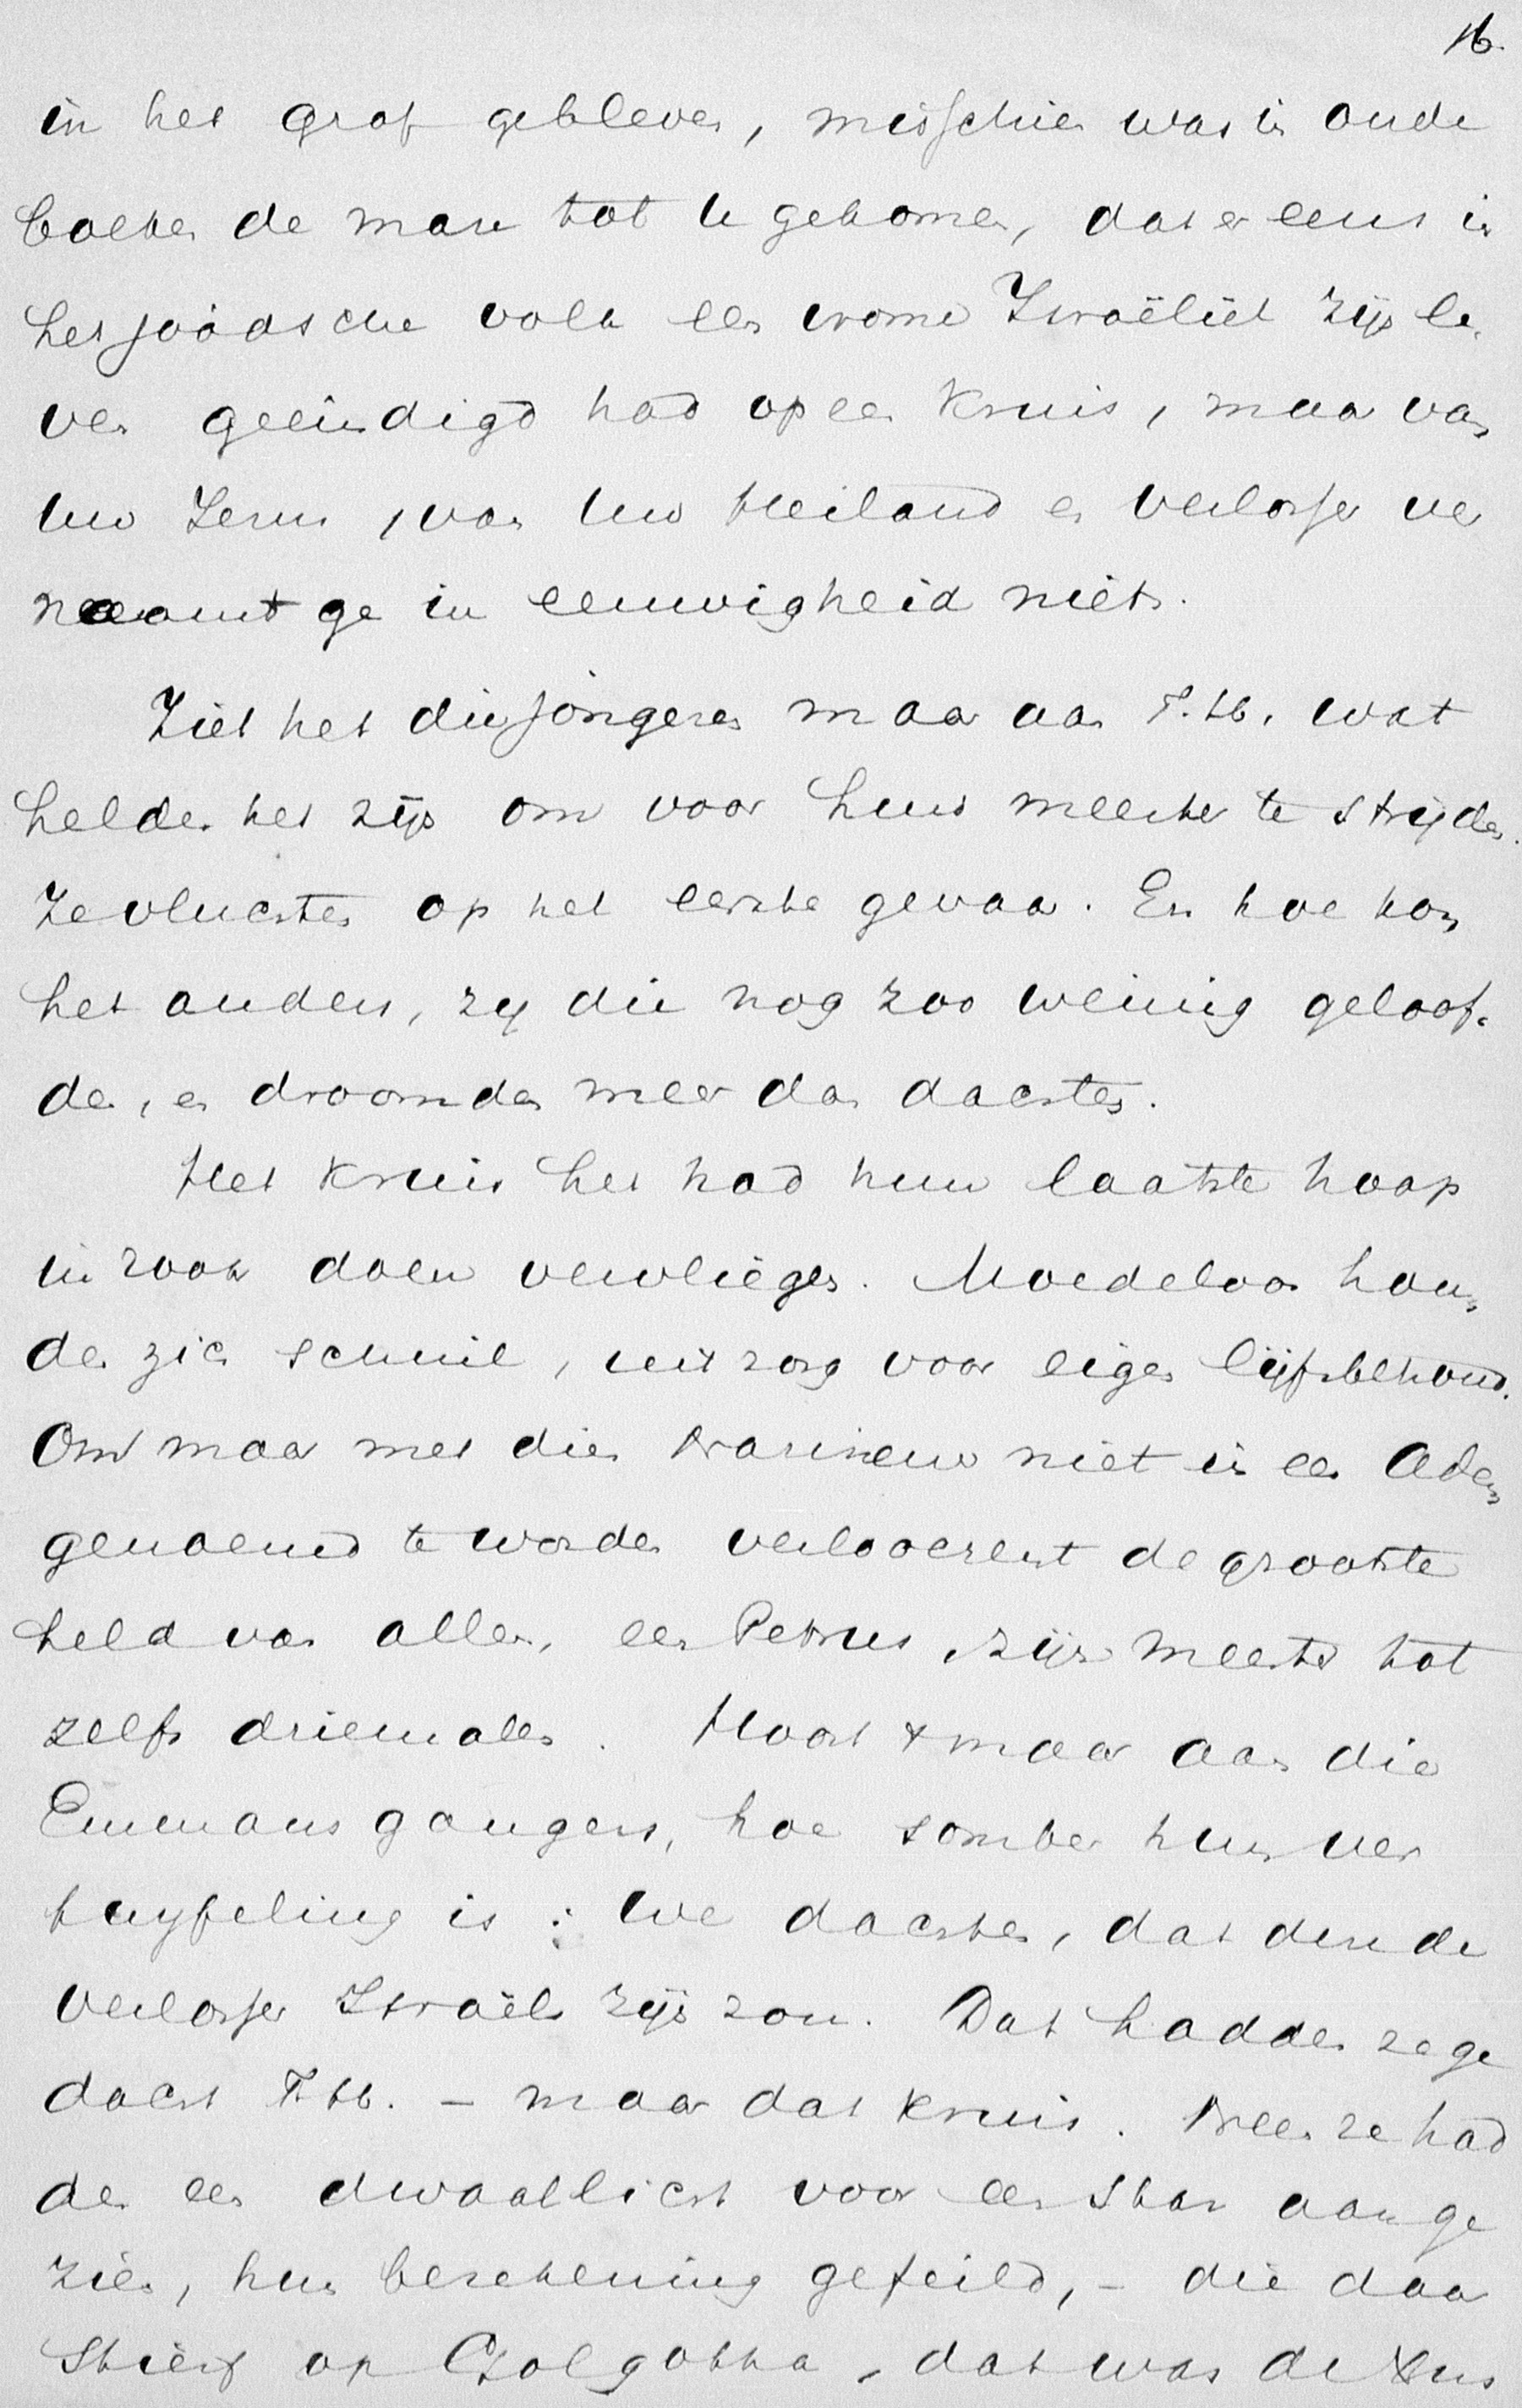 16.
in het graf gebleven, misschien was in oude
boeken de mare tot U gekomen, dat er eens in
het joodsche volk een vrome Israëliet zijn le-
ven geëindigd had op een kruis, maar van
Uw Jezus, van Uw Heiland en Verlosser ver
naamt ge in eeuwigheid niets.
Ziet het die jongeren maar aan T.H. wat
helden het zijn om voor hun meester te strijden.
Ze vluchten op het eerste gevaar. En hoe kon
het anders, zij die nog zoo weinig geloof-
den, en droomden meer dan dachten.
Het kruis het had hun laatste hoop
in rook doen vervliegen. Moedeloos hou-
den zich schuil, uit zorg voor eigen lijfsbehoud.
Om maar met dien Nazireeuw niet in een Adem
genoemd te worden verloochent de grootste
held van allen, een Petrus, zijn meester tot
zelfs driemalen. Hoort maar aan die
Emmausgangers, hoe somber hun ver
twijfeling is: We dachten, dat deze de
Verlosser Israëls zijn zou. Dat hadden ze ge
dacht T.H. - maar dat kruis. Neen ze had
den een dwaallicht voor een Star aange
zien, hun berekening gefeild, - die daar
Stierf op Golgotha, dat was de